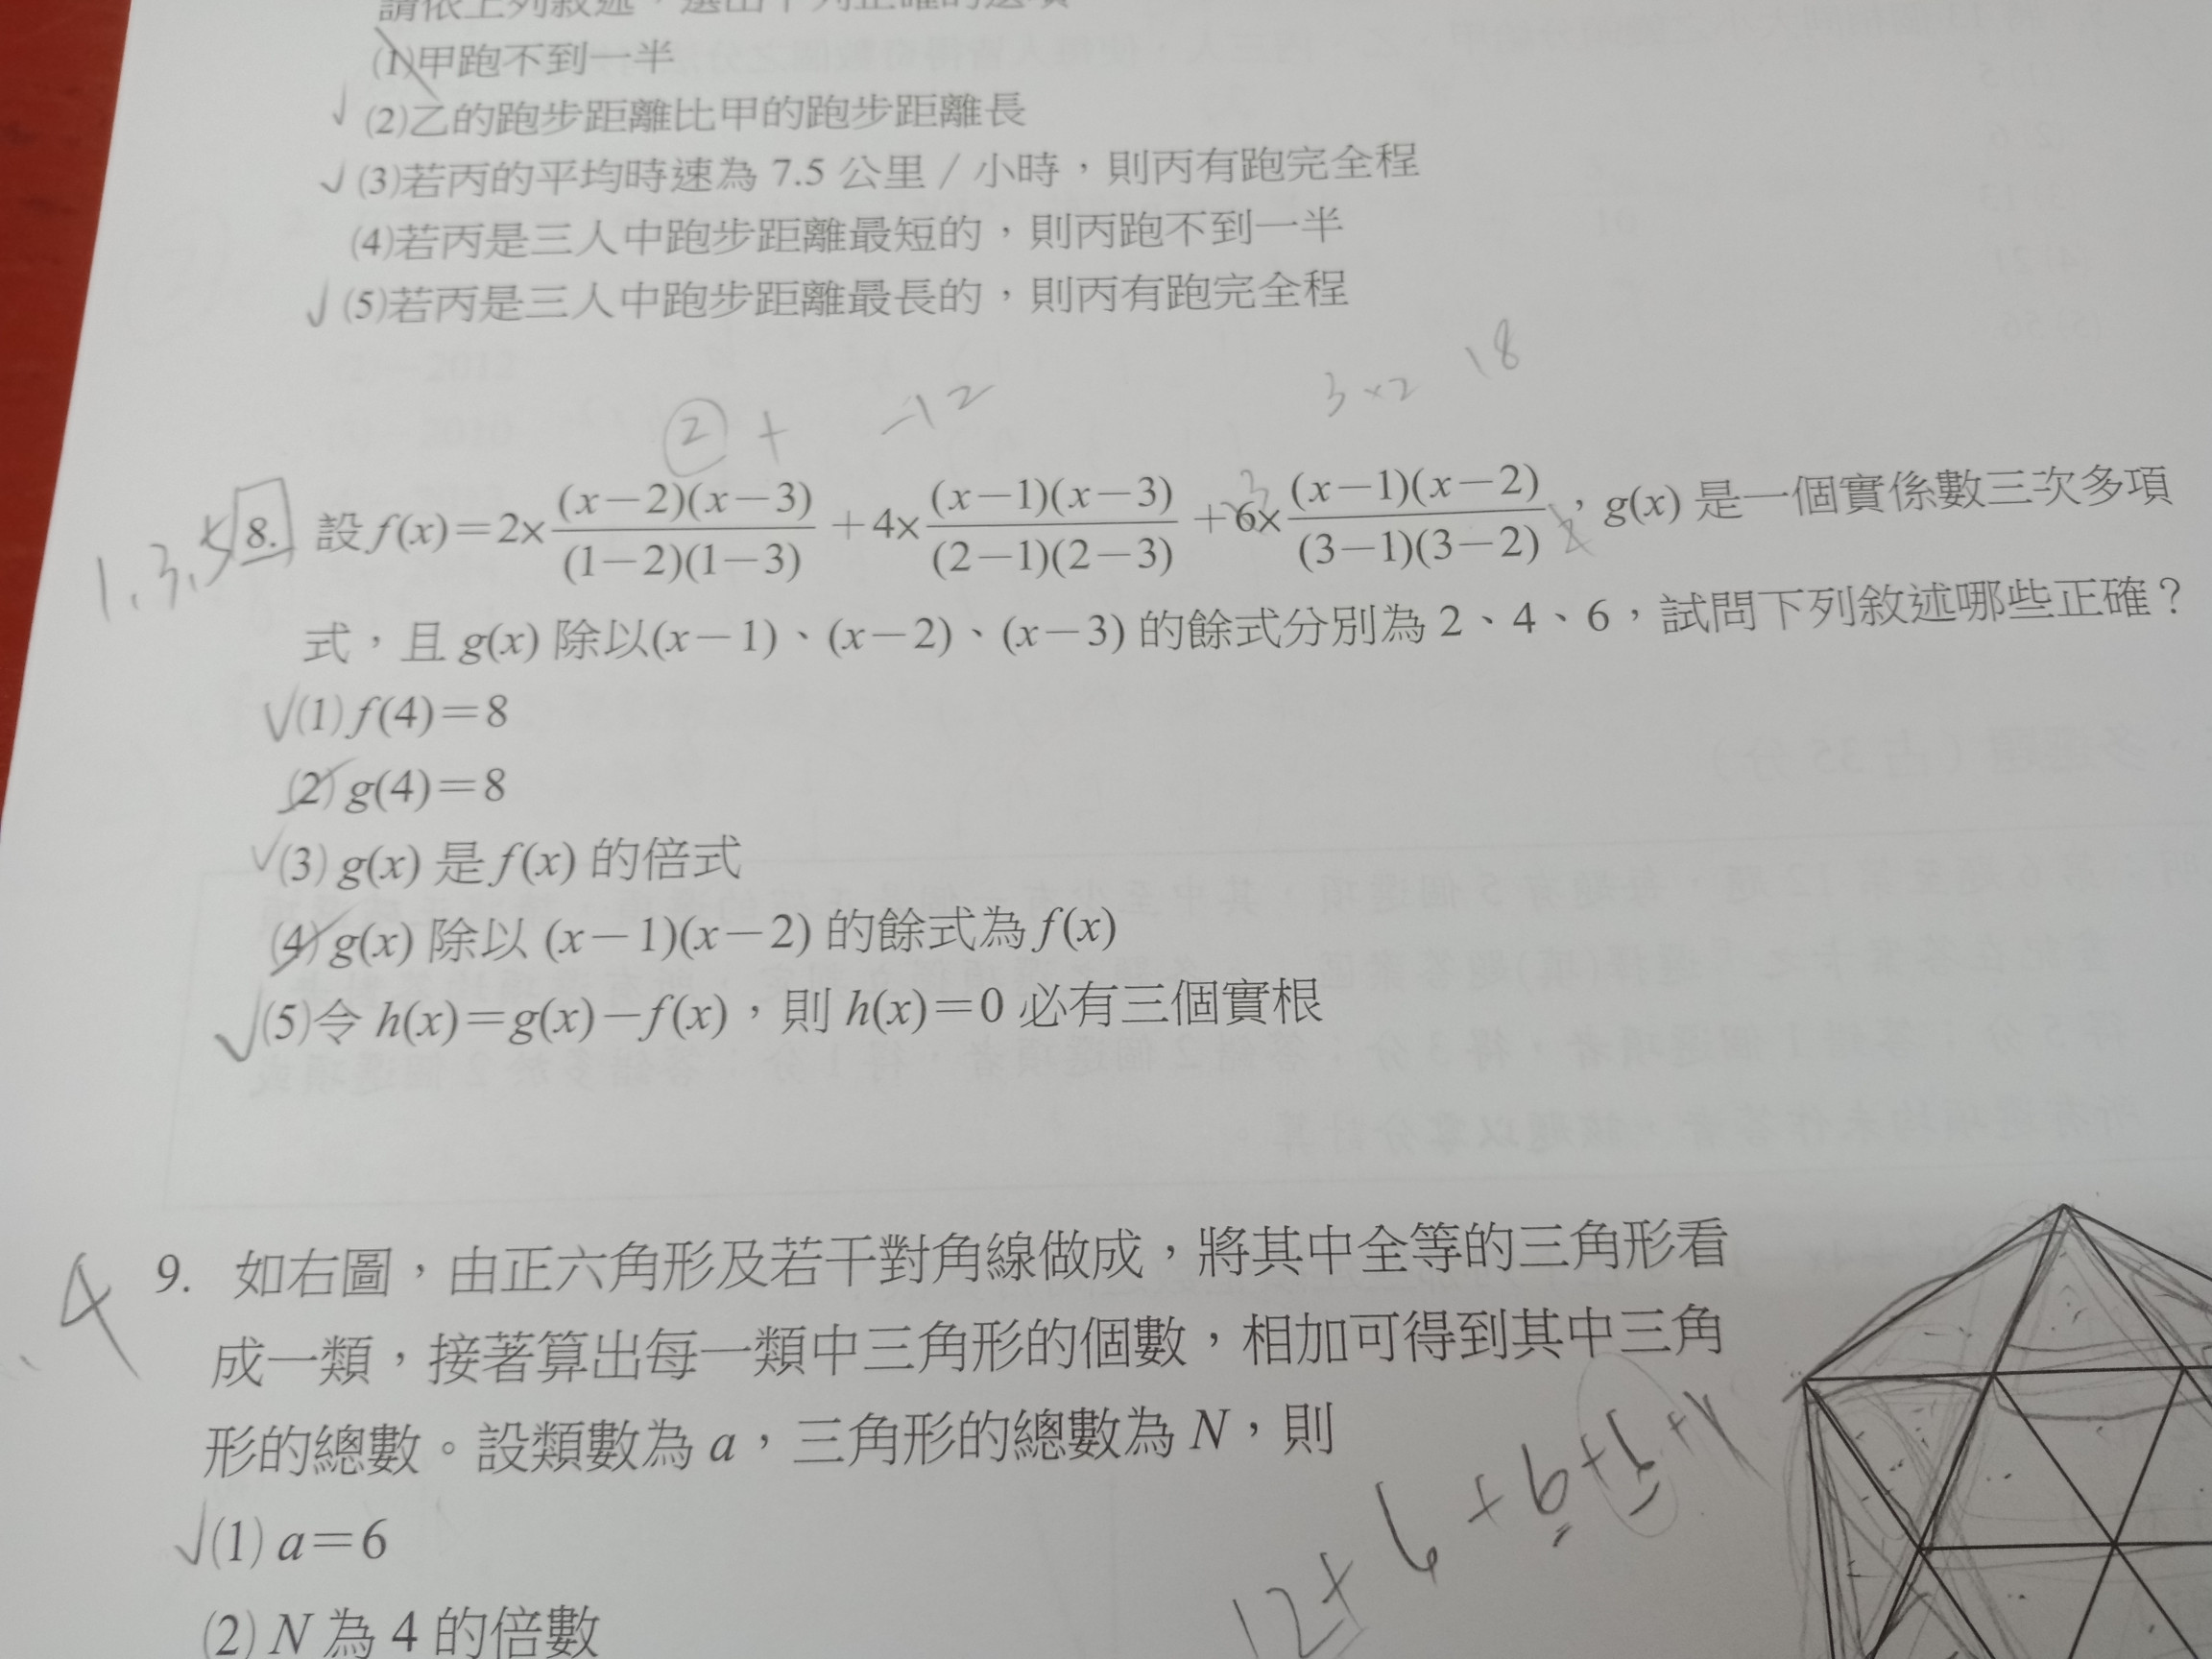 請依上列敘述，選出下列正確的選項
(1)甲跑不到一半
(2)乙的跑步距離比甲的跑步距離長
(3)若丙的平均時速為 7.5 公里 / 小時，則丙有跑完全程
(4)若丙是三人中跑步距離最短的，則丙跑不到一半
(5)若丙是三人中跑步距離最長的，則丙有跑完全程
② + -12 3×2 18
1、3、5 8. 設 f(x)=2×(x-2)(x-3)/(1-2)(1-3)+4×(x-1)(x-3)/(2-1)(2-3)+6×(x-1)(x-2)/(3-1)(3-2)，g(x) 是一個實係數三次多項
式，且 g(x) 除以(x-1)、(x-2)、(x-3) 的餘式分別為 2、4、6，試問下列敘述哪些正確？
(1) f(4)=8
(2) g(4)=8
(3) g(x) 是 f(x) 的倍式
(4) g(x) 除以 (x-1)(x-2) 的餘式為 f(x)
(5)令 h(x)=g(x)-f(x)，則 h(x)=0 必有三個實根
4 9. 如右圖，由正六角形及若干對角線做成，將其中全等的三角形看
成一類，接著算出每一類中三角形的個數，相加可得到其中三角
形的總數。設類數為 a，三角形的總數為 N，則
12+6+6+6+
(1) a=6
(2) N 為 4 的倍數